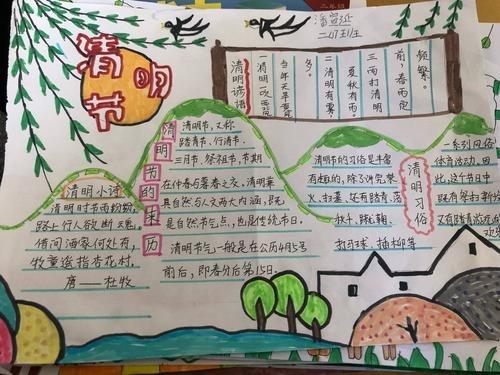 清明节
潘萱延
清明谚语
一清明一吹西
当年天旱
多。
二清明有雾，
夏秋有雨。
三雨打清明
前，春雨定
频繁。
清明小诗
清明时节雨纷纷，
路上行人欲断魂。
借问酒家何处有，
牧童遥指杏花村。
唐——杜牧
清明节的来历
清明节，又称
踏青节、行清节、
三月节、祭祖节，节期
在仲春与暮春之交，清明兼
具自然与人文两大内涵，既
是自然节气点，也是传统节日。
清明节气一般是在公历4月5号
前后，即春分后第15日。
清明习俗
清明节的习俗是丰富
有趣的，除了讲究禁
火、扫墓，还有踏青、荡
秋千、蹴鞠、
打马球、插柳等
一系列风俗
体育活动，因
此，这个节日中
既有祭扫新坟
又有踏青游玩
欢